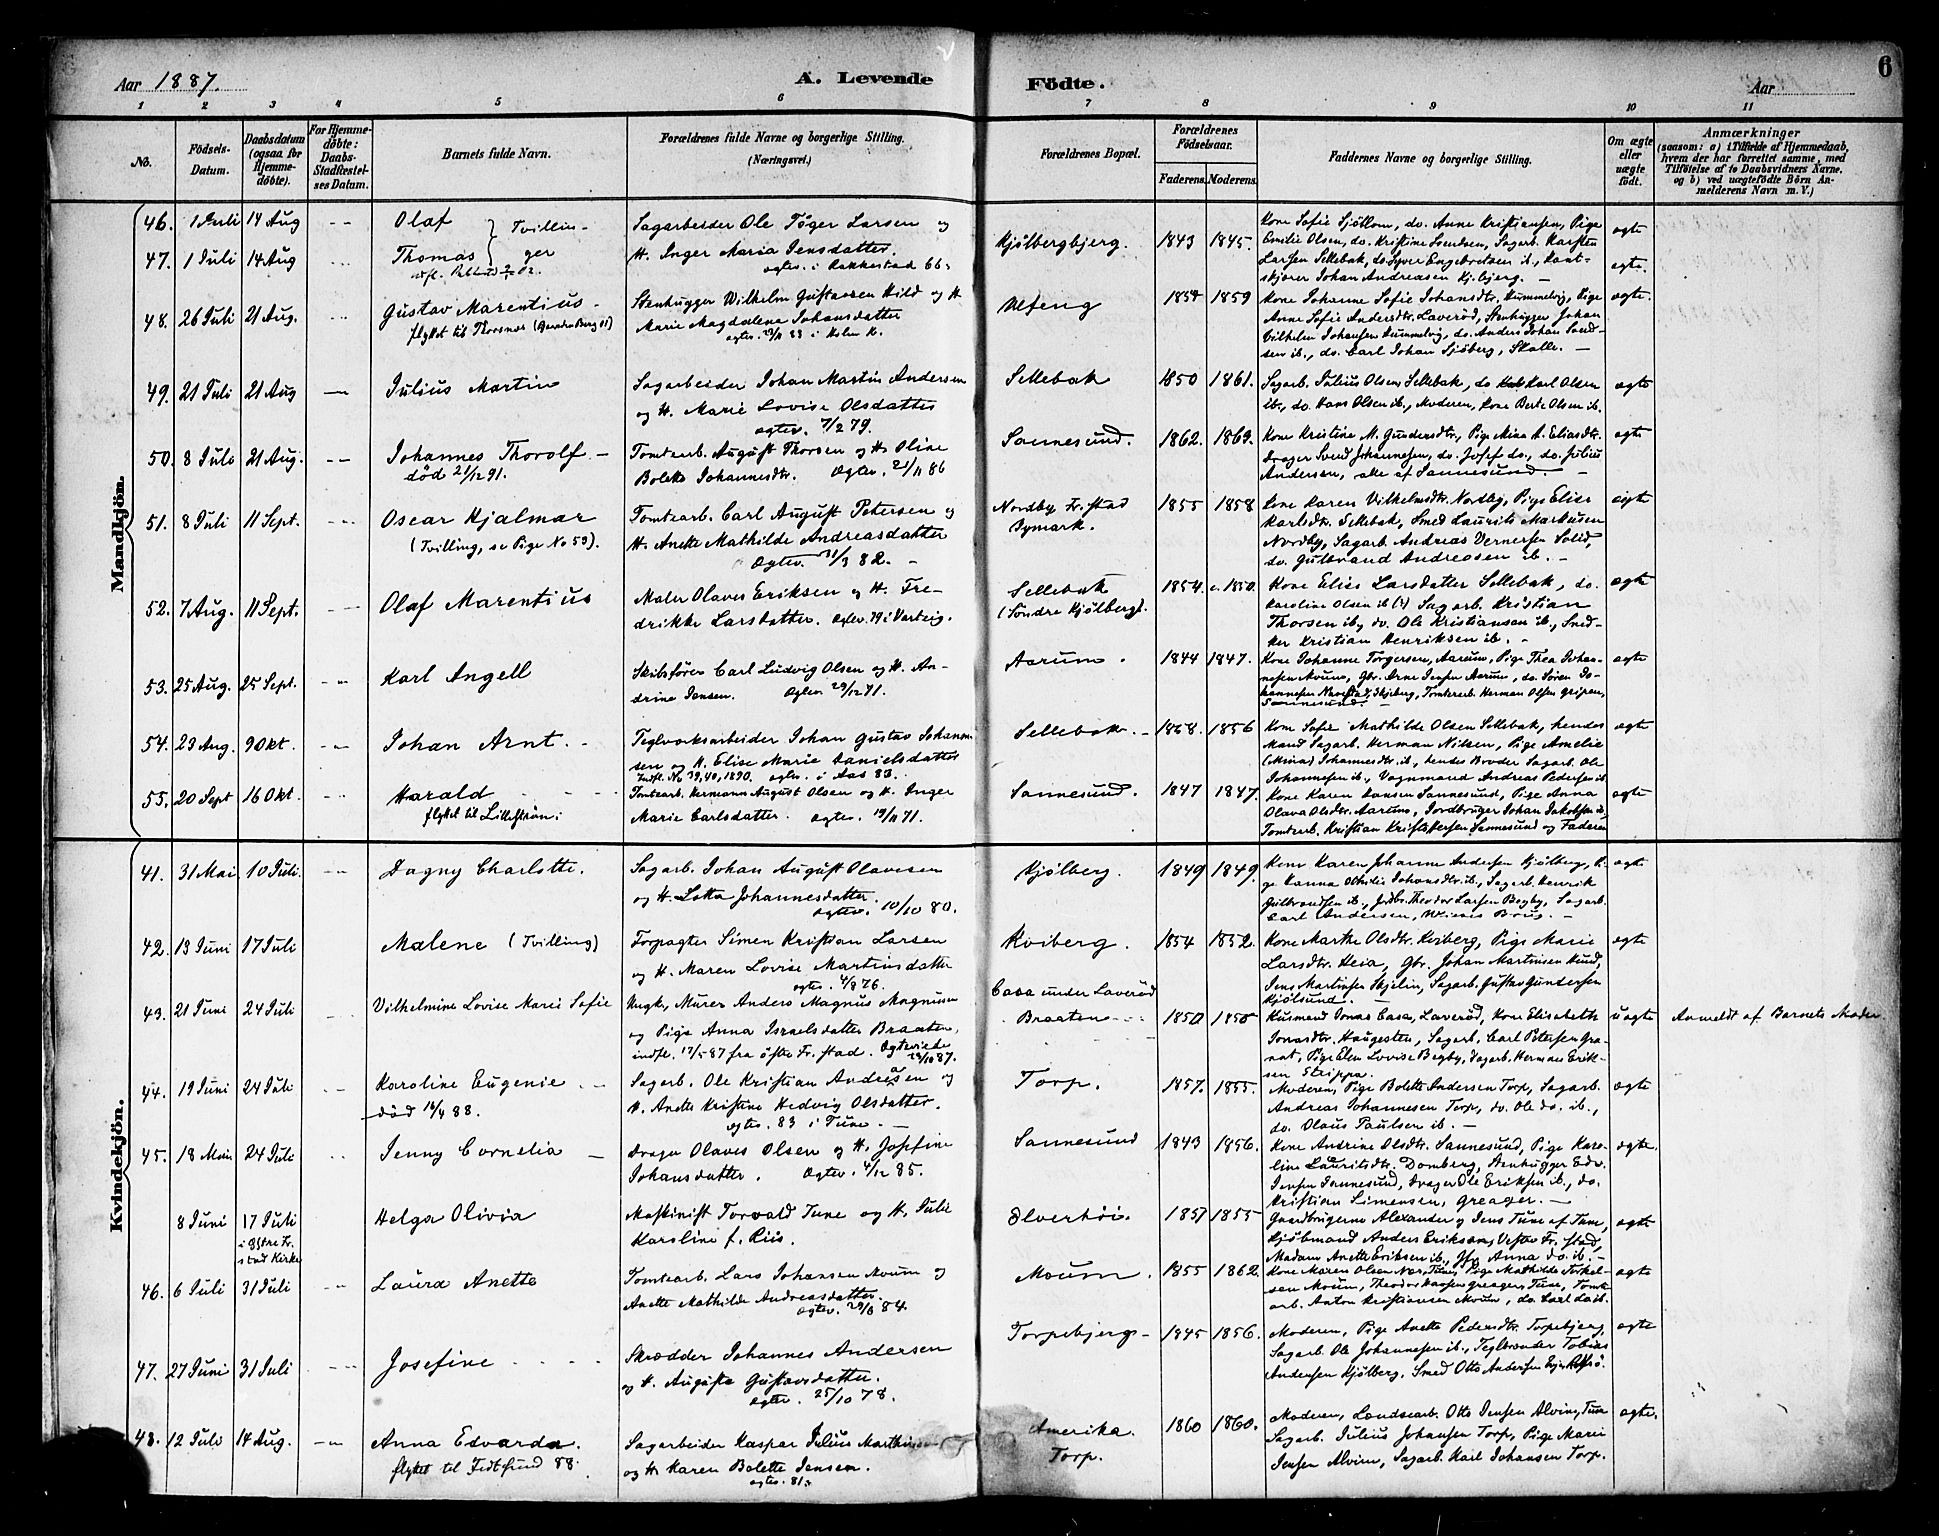 Aar 1887.
A. Levende
Födte.
Aar
6
1 2 3 4 5 6 7 8 9 10 11
No.
Födsels-Datum.
Daabsdatum (ogsaa for Hjemme-döbte).
For Hjemme-döbte: Daabs-Stadfæstel-ses Datum.
Barnets fulde Navn.
Forældrenes fulde Navne og borgerlige Stilling. (Næringsvei.)
Forældrenes Bopæl.
Forældrenes Födselsaar.
Faderens. Moderens.
Faddernes Navne og borgerlige Stilling.
Om ægte eller uægte födt.
Anmærkninger
(saasom: a) i Tilfælde af Hjemmedaab,
hvem der har forrettet samme, med
Tilföielse af to Daabsvidners Navne.
og b) ved uægtefödte Börn An-
melderens Navn m. V.)
Mandkjön.
46. 1 Juli 14 Aug -- Olaf } Tvillin-
47. 1 Juli 14 Aug Thomas } ger
Sagarbeider Ole Tøger Larsen og
H. Inger Maria Jensdatter.
ægtev. i Rakkestad 66.
Kjølbergbjerg. 1843 1845.
Kone Sofie Sjöblom, do. Anne Kristiansen, Pige
Emilie Olsen, do. Kristine Svendsen, Sagarb. Karsten
Larsen Sellebak, do. Syver Engebretsen ib.,
skjærer Johan Andreasen
ægte
ægte.
48. 26 Juli 21 Aug. Gustav Marentius -
flyttet til Thorsnæs
Stenhugger Wilhelm Gustavsen Hild og H.
Marie Magdalena Johansdatter
Uteng 1854 1859
Kone Johanne Sofie Johansdtr. Hummelvig, Pige
Anne Sofie Andersdtr. Laverød, Stenhugger Johan
Vilhelm Johansen Hummelvig, do. Anders Johan
sen ib., do. Carl Johan Sjöberg, Skalle. -
ægte.
49. 21 Juli 21 Aug -- Julius Martin
Sagarbeider Johan Martin Andersen
og H. Marie Lovise Olsdatter
ægtev. 7/2 79.
Sellebak 1850 1861.
Sagarb. Julius Olsen Sellebak, do Karl Olsen
ib., do. Hans Olsen ib., Moderen, Kone Berte Olsen ib.
ægte
50. 8 Juli 21 Aug. -- Johannes Thorolf -
död 21/12 91.
Tomtearb. August Thorsen og H. Oline
Bolette Johannesdtr. Ægtev. 21/11 86
Sannesund. 1862. 1869.
Kone Kristine M. Gundersdtr., Pige Mina A. Eliasdtr.
Drager Svend Johannesen, do. Josef do., do. Julius
Andersen, alle af Sannesund. -
ægte
51. 8 Juli 11 Sept. -- Oscar Hjalmar
(Tvilling, se Pige No 59).
Tomtearb. Carl August Petersen og
H. Anette Mathilde Andreasdatter
Ægtev. 31/3 82. -
Nordby Fr.stad
Bymark. 1855 1858
Kone Karen Vilhelmsdtr. Nordby, Pige Elise
Karlsdtr. Sellebak, Smed Laurits Markusen
Nordby, Sagarb. Andreas Vernersen Solid,
do. Gulbrand Andreasen ib. -
ægte
52. 7 Aug. 11 Sept. -- Olaf Marentius
Maler Olaves Eriksen og H. Fre-
drikke Larsdatter. Ægtev. 79 i Varteig.
Sellebak
(Söndre Kjölberg). 1854. c. 1850.
Kone Elise Larsdatter Sellebak, do.
Karoline Olsen ib (?) Sagarb. Kristian
Thorsen ib, do. Ole Kristiansen ib., Sned-
ker Kristian Henriksen ib. -
ægte
53. 25 Aug. 25 Sept. -- Karl Angell
Skibsfører Carl Ludvig Olsen og H. An-
drine Jensen. Ægtev. 29/12 71.
Aarum. 1844 1847.
Kone Johanne Torgersen, Aarum, Pige Thea Johan-
nesen Moum, Gbr. Arne Jensen Aarum, do. Sören Jo-
hannesen Skjeberg, Tomtearb. Herman Olsen Gripen,
Sannesund. -
ægte
54. 23 Aug. 9 Okt. -- Johan Arnt. -
Teglverksarbeider Johan Gustav Johann-
sen og H. Elise Marie Danielsdatter
Indfl. No 39, 40, 1890. ægtev. i Aas 83.
Sellebak. 1868. 1856
Kone Sofie Mathilde Olsen Sellebak, hendes
Mand Sagarb. Herman Nilsen, Pige Amelie
(Mina) Johannesdtr. ib., hendes Broder Sagarb. Ole
Johannesen ib., Vognmand Andreas Pedersen ib
ægte
55. 20 Sept 16 Okt. -- Harald
flyttet til Lilleström.
Tomtearb. Hermann August Olsen og H. Inger
Marie Carlsdatter. Ægtev. 19/11 71.
Sannesund. 1847 1847.
Kone Karen Hansen Sannesund, Pige Anna
Olava Olsdtr. Aarum, Jordbruger Johan Jakobsen ib,
Tomtearb. Kristian Kristoffersen Sannesund og Faderen
ægte
Kvindekjön.
41. 31 Mai. 10 Juli. -- Dagny Charlotte.
Sagarb. Johan August Olavesen
og H. Lotta Johannesdatter.
ægtev. 10/10 80.
Kjölberg. 1849 1849.
Kone Karen Johanne Andersen Kjölberg, Pi-
ge Hanna Othilie Johansdtr. ib., Sagarb. Henrik
Gulbrandsen ib., Jordbr. Theodor Larsen Begby, Sagarb.
Carl Andersen, Brug. -
ægte
42. 13 Juni 17 Juli Malene (Tvilling)
Forpagter Simen Kristian Larsen
og H. Maren Lovise Martinsdatter
ægtev. 76.
Kviberg. 1854 1852.
Kone Marthe Olsdtr. Kviberg, Pige Marie
Larsdtr. Heia, Gbr. Johan Martinsen Hund,
Jens Martinsen Skjelin, Sagarb. Gustav Gundersen
Kjölsund. -
ægte
43. 21 Juni 24 Juli Vilhelmine Lovise Marie Sofie
Ungk., Murer Anders Magnus Magnusen
og Pige Anna Israelsdatter Braaten,
indfl. 17/5 87 fra östre Fr.stad. Ægteviede
29/10 87.
Casa under Laverød
Braaten -- 1850 1855
Husmand Jonas Casa, Laverød, Kone Elisabeth
Jonasdtr. Haugesten, Sagarb. Carl Petersen Gra-
nat, Pige Elen Lovise Begby, Sagarb. Herman Erik-
sen Strippa.
uægte Anmeldt af Barnets Moder
44. 19 Juni 24 Juli -- Karoline Eugenie --
död 16/4 88.
Sagarb. Ole Kristian Andreasen og
H. Anette Kristine Hedvig Olsdatter.
ægtev. 83 i Tune. -
Torp. 1857. 1855.
Moderen, Pige Bolette Andersen Torp, Sagarb.
Andreas Johannesen Torp, do. Ole do. ib.,
do. Olaus Paulsen ib. -
ægte
45. 18 Mai 24 Juli Jenny Cornelia -
Drager Olaves Olsen og H. Josefine
Johansdatter. Ægtev. 4/12 85.
Sannesund 1843 1856.
Kone Andrine Olsdtr. Sannesund, Pige Karo-
line Lauritsdtr. Domberg, Stenhugger Edv.
Jensen Sannesund, Drager Ole Eriksen ib., do.
Kristian Simensen, Greager. -
ægte.
8 Juni 17 Juli
i Østre Fr.
stad Kirke
Helga Olivia
Maskinist Torvald Tune og H. Julie
Karoline f. Riis.
Elverhöi. 1857 1855
Gaardbrugerne Alexander og Jens Tune af Tune,
Kjöbmand Anders Eriksen, Vestre Fr.stad,
Madam Anette Eriksen ib., Jfr. Anna do. ib. -
ægte
46. 6 Juli 31 Juli -- Laura Anette
Tomtearb. Lars Johansen Moum og
Anette Mathilde Andreasdatter.
Ægtev. 84.
Moum. 1855 1862.
Kone Maren Olsen Tune, Pige Mathilde
sen Moum, Theodor Hansen Greager, Tune, Tomte
arb. Anton Kristiansen Moum, do. Carl do ib.
ægte
47. 27 Juni 31 Juli -- Josefine
Skrædder Johannes Andersen
og H. Augusta Gustavsdatter.
ægtev. 25/10 78.
Torpebjerg - 1845 1856.
Moderen, Pige Anette Pedersdtr. Torpebjerg,
Sagarb. Ole Johannesen ib., Teglbrænder Tobias
Andersen Kjölberg, Smed Otto Andersen
ægte
48. 12 Juli 14 Aug. -- Anna Edvarda.
flyttet til 88.
Sagarbeider Kaspar Julius Marthinsen
og H. Karen Bolette Jensen.
ægtev. 81.
Amerika.
Torp. 1860 1860.
Moderen, Landsearb. Otto Jensen Alvim, Tune
Sagarb. Julius Johansen Torp, Pige Marie
Jensen Alvim, Sagarb. Karl Johansen Torp.
ægte.